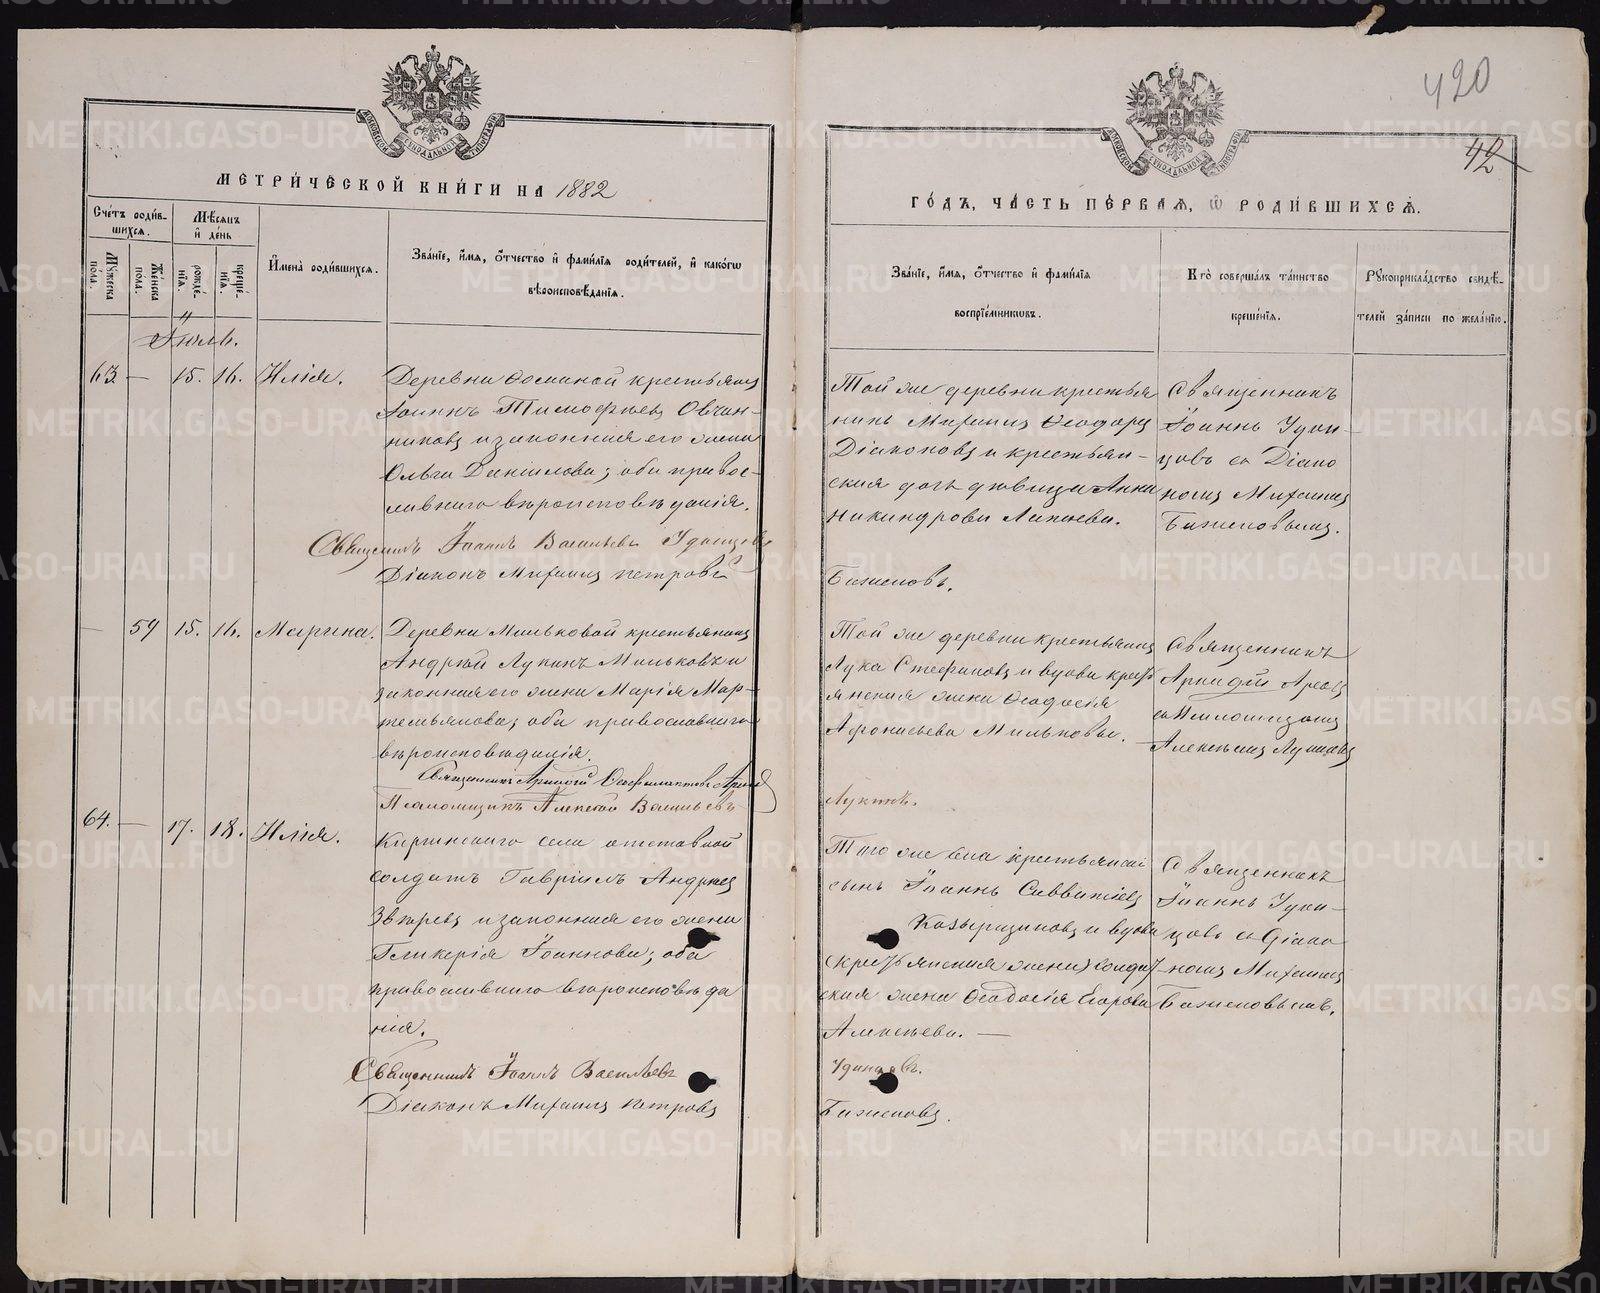 420
42
МЕТРИЧЕСКОЙ КНИГИ НА 1882
ГОДЪ, ЧАСТЬ ПЕРВАЯ, Ѡ РОДИВШИХСЯ.
Счетъ родившихся.
Мужеска пола.
Женска пола.
Мѣсяцъ и день
рожденія.
крещенія.
Имена родившихся.
Званіе, имя, отчество и фамилія родителей, и какогѡ
вѣроисповѣданія.
Званіе, имя, отчество и фамилія
воспріемниковъ.
Кто совершалъ таинство
крещенія.
Рукоприкладство свидѣ-
телей записи по желанію.
Іюль.
63. — 15. 16. Илія.
Деревни крестьянинъ
Іоаннъ Тимофѣевъ Овчин-
никовъ и законная его жена
Ольга Данилова; оба правос-
лавнаго вѣроисповѣданія.
Священникъ Іоаннъ Васильевъ Удинцевъ
Діаконъ Михаилъ Петровъ
Той же деревни крестья
нинъ Михаилъ Ѳеодоровъ
Діаконовъ и крестьян-
ская дочь дѣвица Анна
Никандрова
Баженовъ.
Священникъ
Іоаннъ Удин-
цовъ съ Діако
номъ Михаиломъ
Баженовымъ.
— 59 15. 16. Марина.
Деревни Мильковой крестьянинъ
Андрей Лукинъ Мильковъ и
законная его жена Марія Мар-
темьянова; оба православнаго
вѣроисповѣданія.
Священникъ Аркадій
Псаломщикъ Алексѣй Васильевъ
Той же деревни крестьянинъ
Лука Стефановъ и вдова крест
янская жена Ѳеодосія
Афонасьева Мильковы.
Лукинъ.
Священникъ
Аркадій
съ Псаломщикомъ
Алексѣемъ Лукинымъ
64. — 17. 18. Илія.
Киргинскаго села отставной
солдатъ Гавріилъ Андреевъ
Звѣревъ и законная его жена
Гликерія Іоаннова; оба
православнаго вѣроисповѣда
нія.
Священникъ Іоаннъ Васильевъ
Діаконъ Михаилъ Петровъ
Того же села крестьянскій
сынъ Іоаннъ Савватіевъ
и вдова
(крестьянская жена) солдат
ская жена Ѳеодосія Егорова
Алексѣева. —
Удинцовъ.
Баженовъ.
Священникъ
Іоаннъ Удин-
цовъ съ Діако
номъ Михаиломъ
Баженовымъ.
METRIKI.GASO-URAL.RU